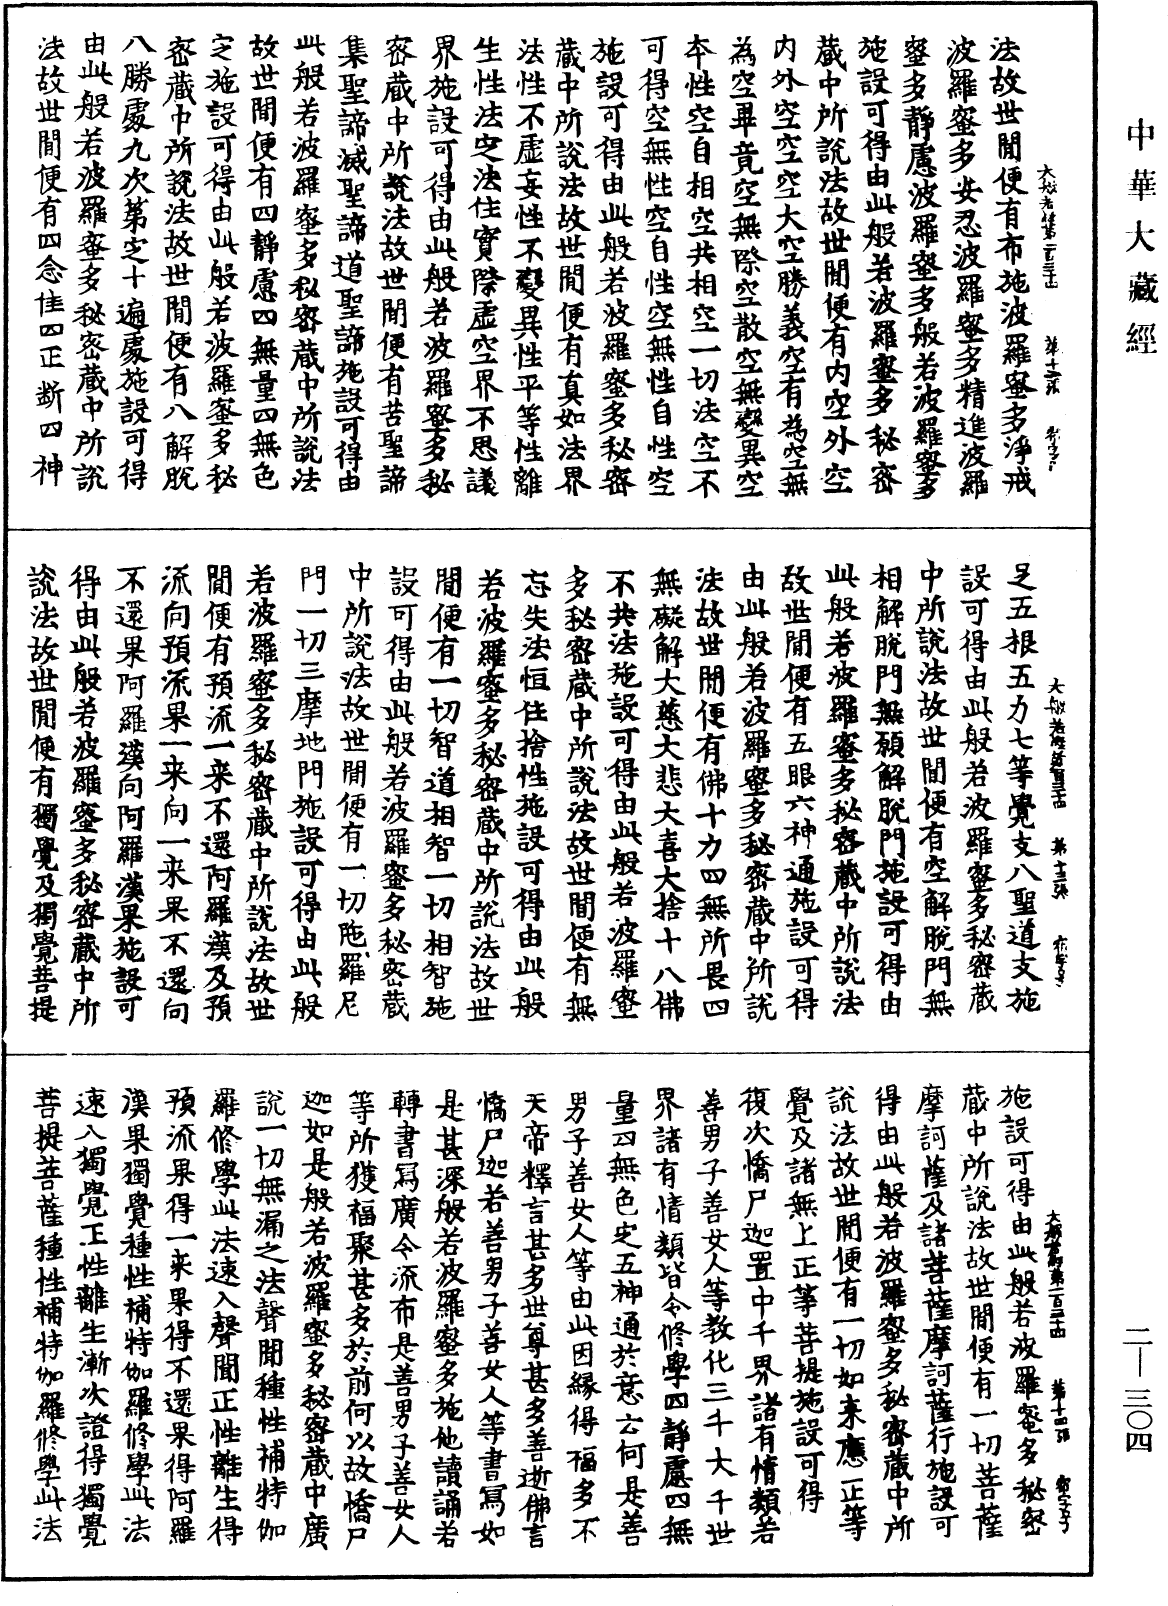 中華大藏經
法故世間便有布施波羅蜜多淨戒
波羅蜜多安忍波羅蜜多精進波羅
蜜多靜慮波羅蜜多般若波羅蜜多
施設可得由此般若波羅蜜多秘密
藏中所說法故世間便有內空外空
內外空空空大空勝義空有為空無
為空畢竟空無際空散空無變異空
本性空自相空共相空一切法空不
可得空無性空自性空無性自性空
施設可得由此般若波羅蜜多秘密
藏中所說法故世間便有真如法界
法性不虛妄性不變異性平等性離
生性法定法住實際虛空界不思議
界施設可得由此般若波羅蜜多秘
密藏中所說法故世間便有苦聖諦
集聖諦滅聖諦道聖諦施設可得由
此般若波羅蜜多秘密藏中所說法
故世間便有四靜慮四無量四無色
定施設可得由此般若波羅蜜多秘
密藏中所說法故世間便有八解脫
八勝處九次第定十遍處施設可得
由此般若波羅蜜多秘密藏中所說
法故世間便有四念住四正斷四神
足五根五力七等覺支八聖道支施
設可得由此般若波羅蜜多秘密藏
中所說法故世間便有空解脫門無
相解脫門無願解脫門施設可得由
此般若波羅蜜多秘密藏中所說法
故世間便有五眼六神通施設可得
由此般若波羅蜜多秘密藏中所說
法故世間便有佛十力四無所畏四
無礙解大慈大悲大喜大捨十八佛
不共法施設可得由此般若波羅蜜
多秘密藏中所說法故世間便有無
忘失法恒住捨性施設可得由此般
若波羅蜜多秘密藏中所說法故世
間便有一切智道相智一切相智施
設可得由此般若波羅蜜多秘密藏
中所說法故世間便有一切陁羅尼
門一切三摩地門施設可得由此般
若波羅蜜多秘密藏中所說法故世
間便有預流一来不還阿羅漢及預
流向預流果一来向一来果不還向
不還果阿羅漢向阿羅漢果施設可
得由此般若波羅蜜多秘密藏中所
說法故世間便有獨覺及獨覺菩提
施設可得由此般若波羅蜜多秘密
藏中所說法故世間便有一切菩薩
摩訶薩及諸菩薩摩訶薩行施設可
得由此般若波羅蜜多秘密藏中所
說法故世間便有一切如来應正等
覺及諸無上正等菩提施設可得
復次憍尸迦置中千界諸有情類若
善男子善女人等教化三千大千世
界諸有情類皆令修學四靜慮四無
量四無色定五神通於意云何是善
男子善女人等由此因緣得福多不
天帝釋言甚多世尊甚多善逝佛言
憍尸迦若善男子善女人等書寫如
是甚深般若波羅蜜多施他讀誦若
轉書寫廣令流布是善男子善女人
等所獲福聚甚多於前何以故憍尸
迦如是般若波羅蜜多秘密藏中廣
說一切無漏之法聲聞種性補特伽
羅修學此法速入聲聞正性離生得
預流果得一来果得不還果得阿羅
漢果獨覺種性補特伽羅修學此法
速入獨覺正性離生漸次證得獨覺
菩提菩薩種性補特伽羅修學此法
二—三〇四